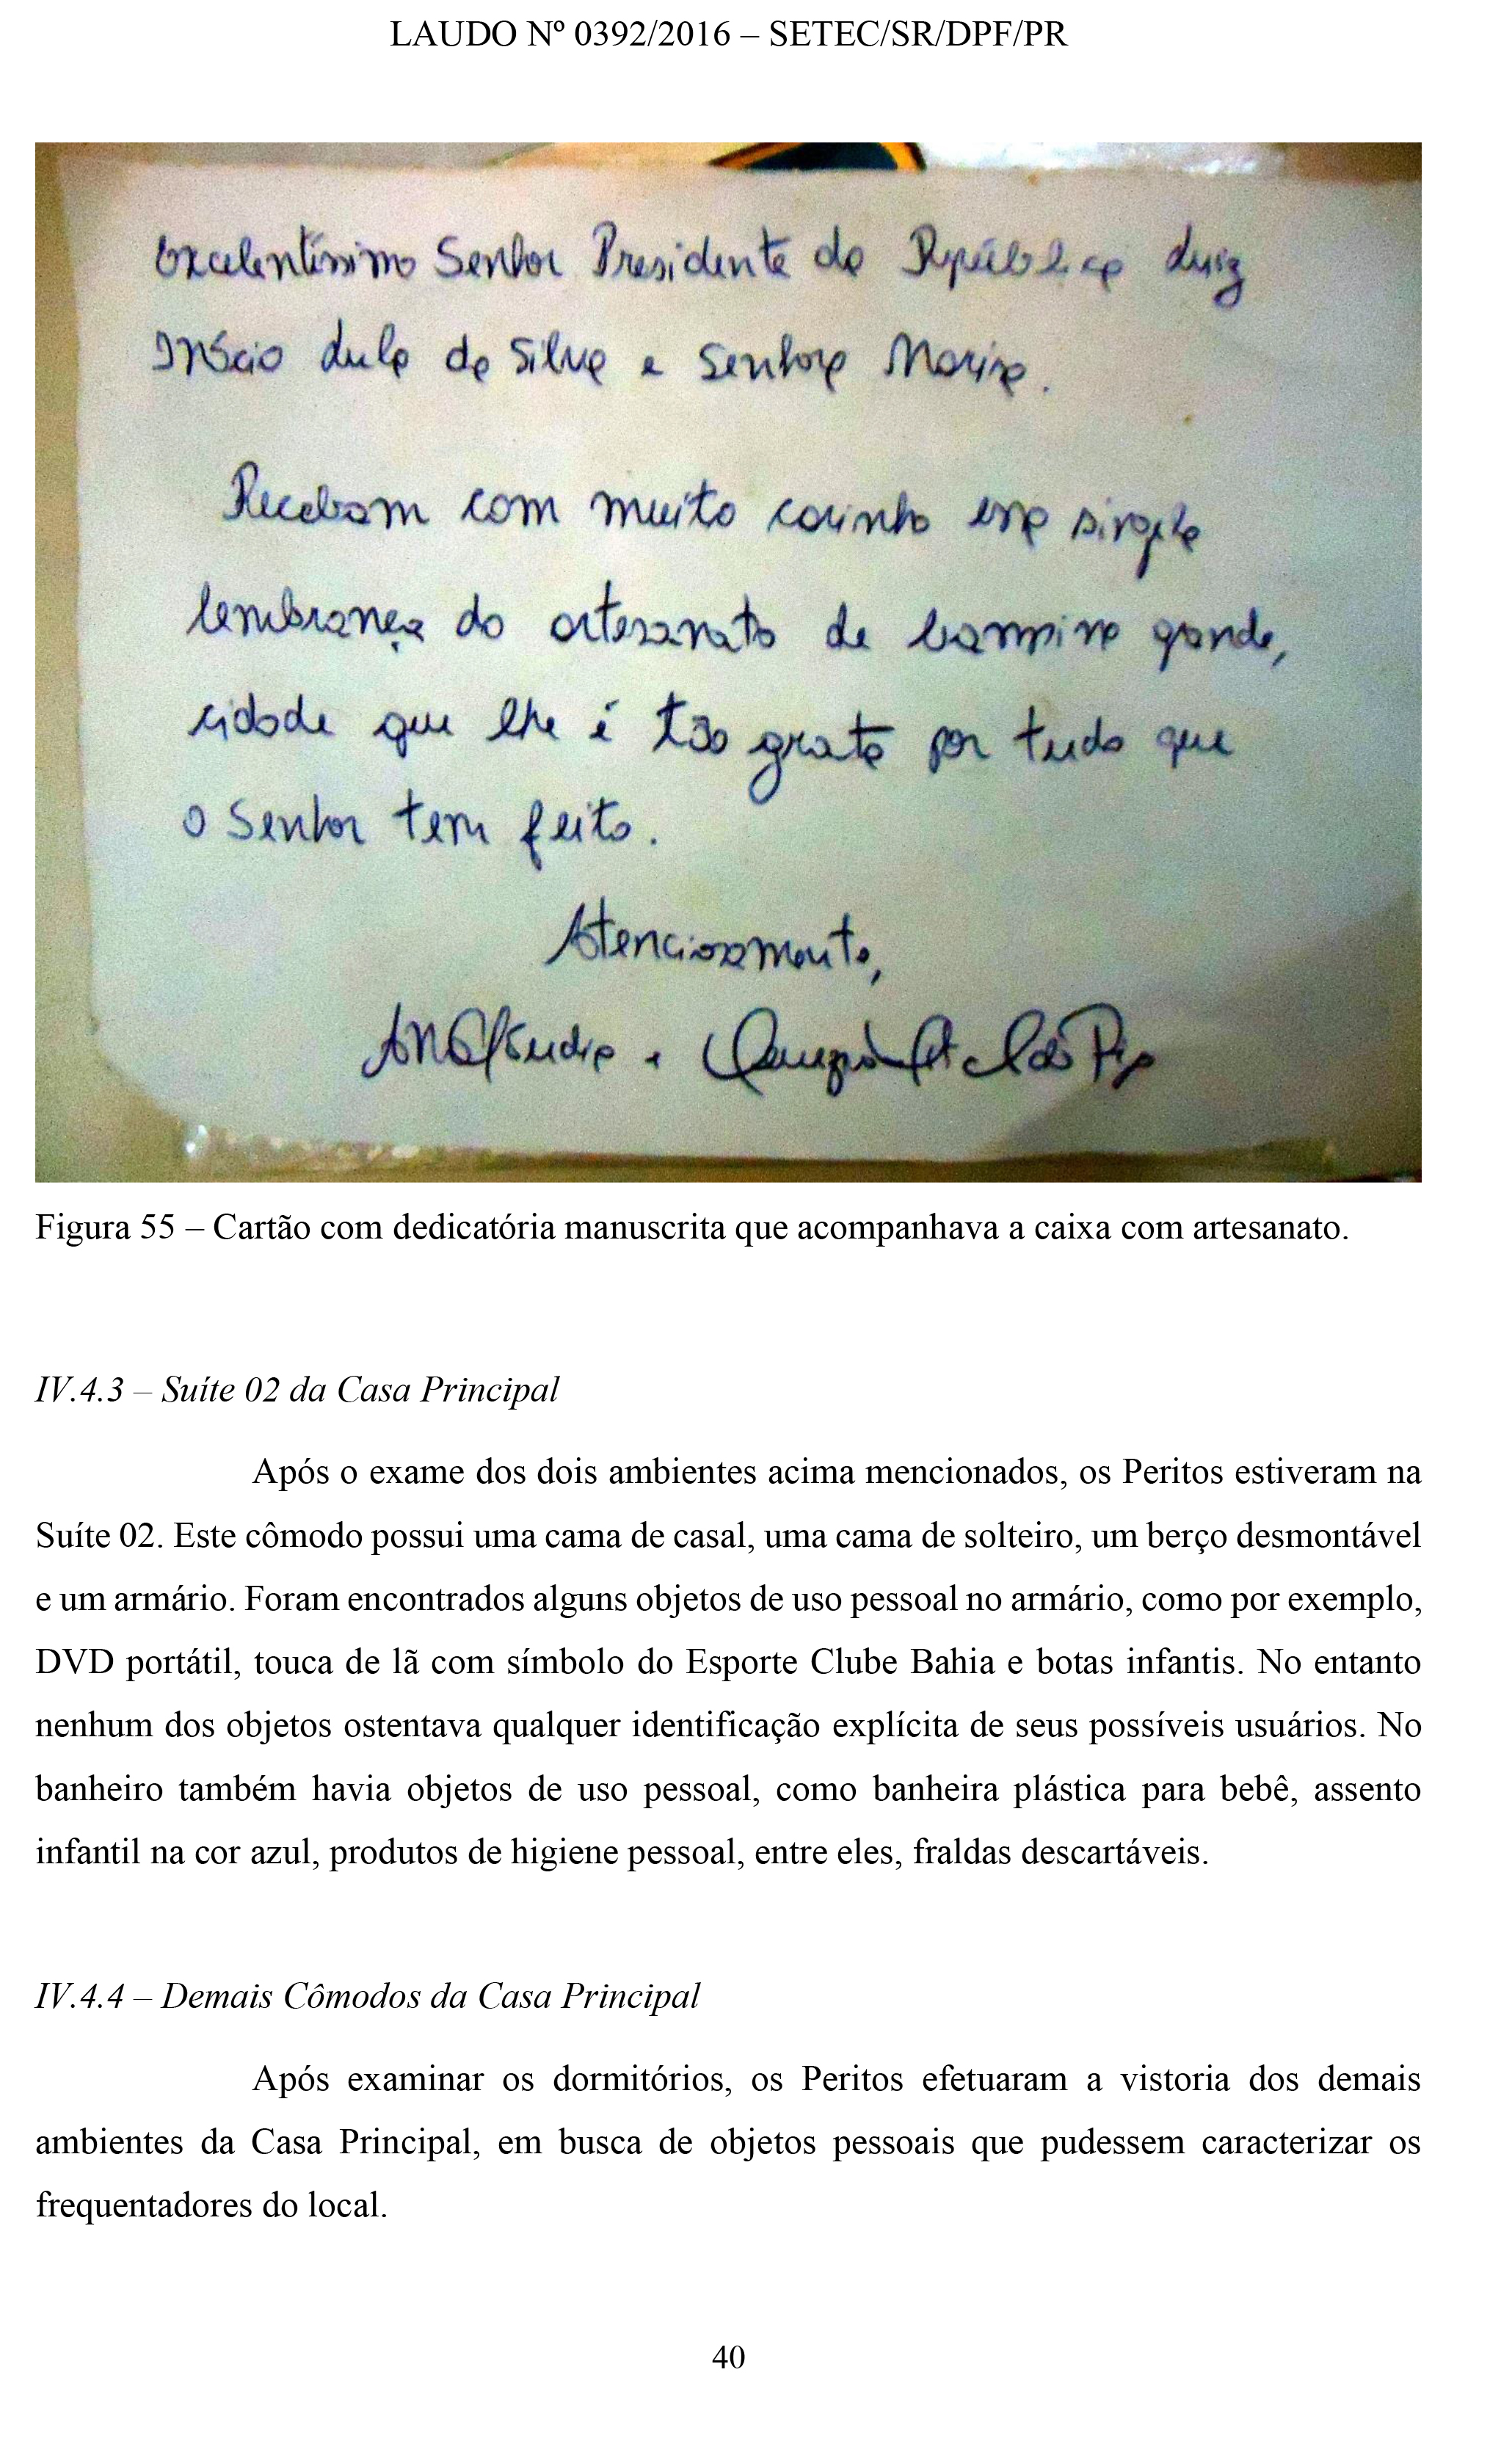 LAUDO Nº 0392/2016 – SETEC/SR/DPF/PR
Excelentíssimo Senhor Presidente da República Luiz
Inácio Lula da Silva e Senhora Marisa.
Recebam com muito carinho essa simples
lembrança do artesanato de Campina grande,
cidade que lhe é tão grata por tudo que
o Senhor tem feito.
Atenciosamente,
Ana Cláudia e
Figura 55 – Cartão com dedicatória manuscrita que acompanhava a caixa com artesanato.
IV.4.3 – Suíte 02 da Casa Principal
Após o exame dos dois ambientes acima mencionados, os Peritos estiveram na
Suíte 02. Este cômodo possui uma cama de casal, uma cama de solteiro, um berço desmontável
e um armário. Foram encontrados alguns objetos de uso pessoal no armário, como por exemplo,
DVD portátil, touca de lã com símbolo do Esporte Clube Bahia e botas infantis. No entanto
nenhum dos objetos ostentava qualquer identificação explícita de seus possíveis usuários. No
banheiro também havia objetos de uso pessoal, como banheira plástica para bebê, assento
infantil na cor azul, produtos de higiene pessoal, entre eles, fraldas descartáveis.
IV.4.4 – Demais Cômodos da Casa Principal
Após examinar os dormitórios, os Peritos efetuaram a vistoria dos demais
ambientes da Casa Principal, em busca de objetos pessoais que pudessem caracterizar os
frequentadores do local.
40